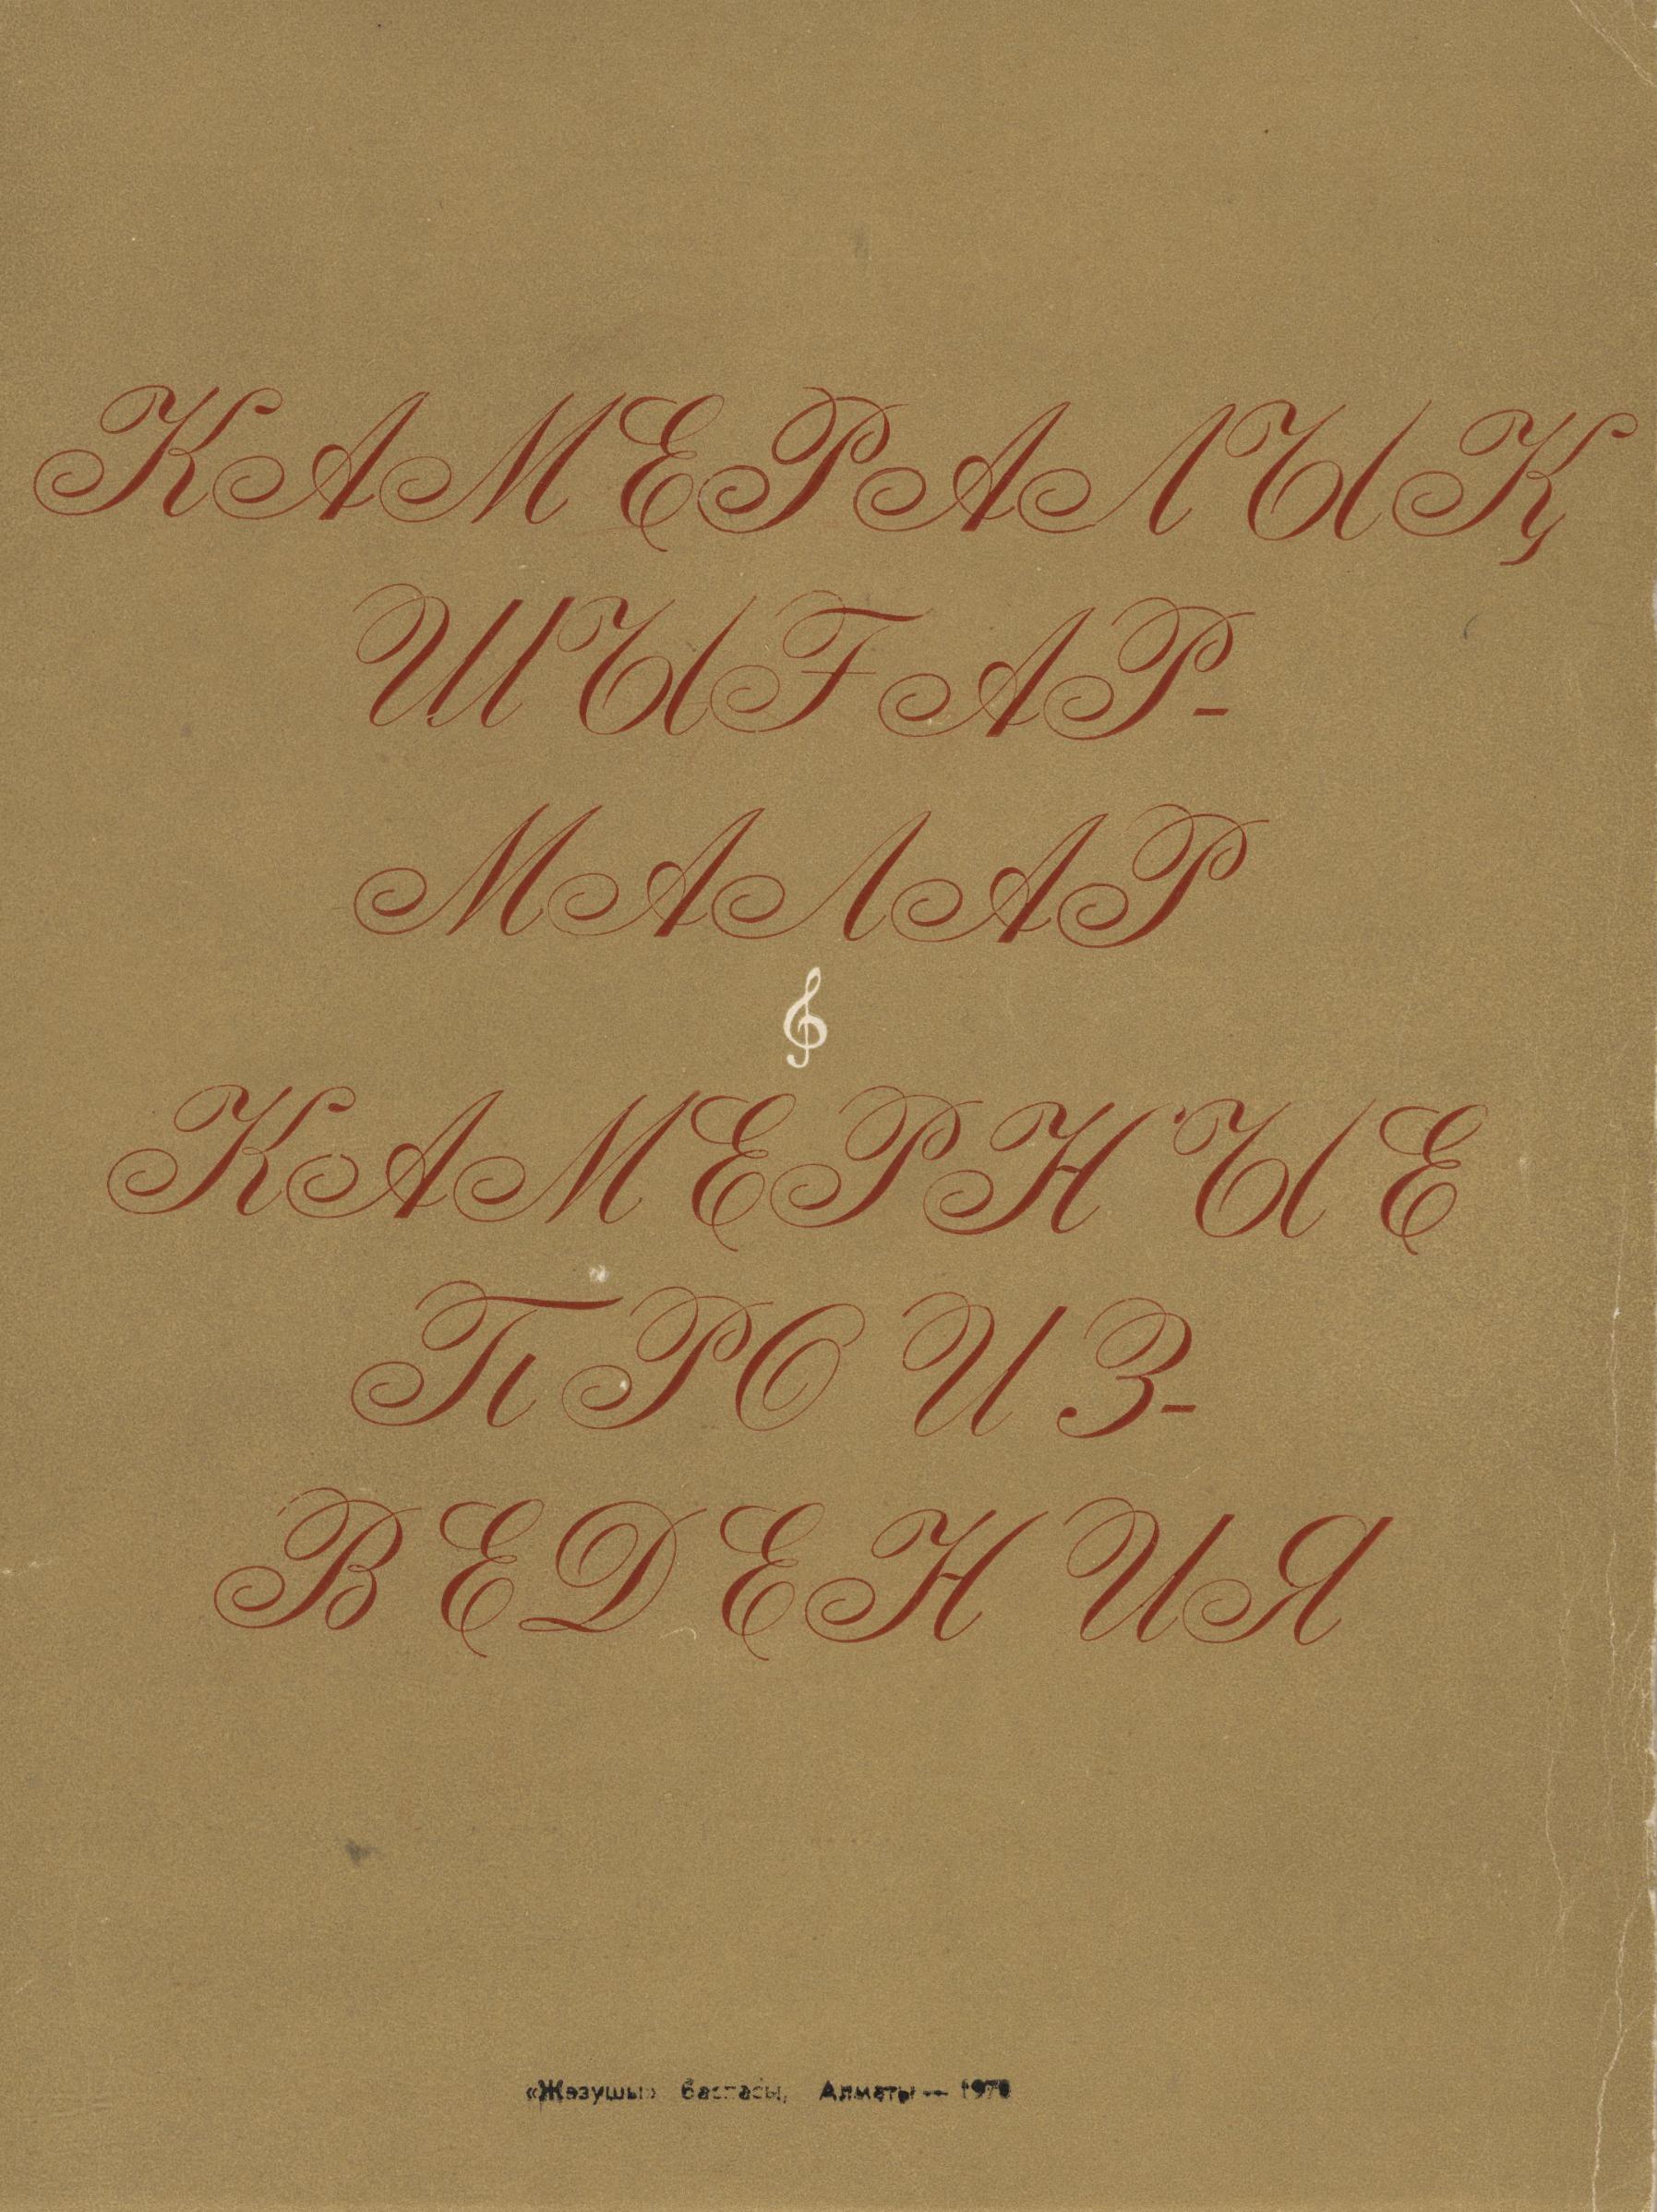 КАМЕРАЛЫҚ
ШЫҒАР-
МАЛАР
КАМЕРНЫЕ
ПРОИЗ-
ВЕДЕНИЯ
«Жазушы» баспасы, Алматы —